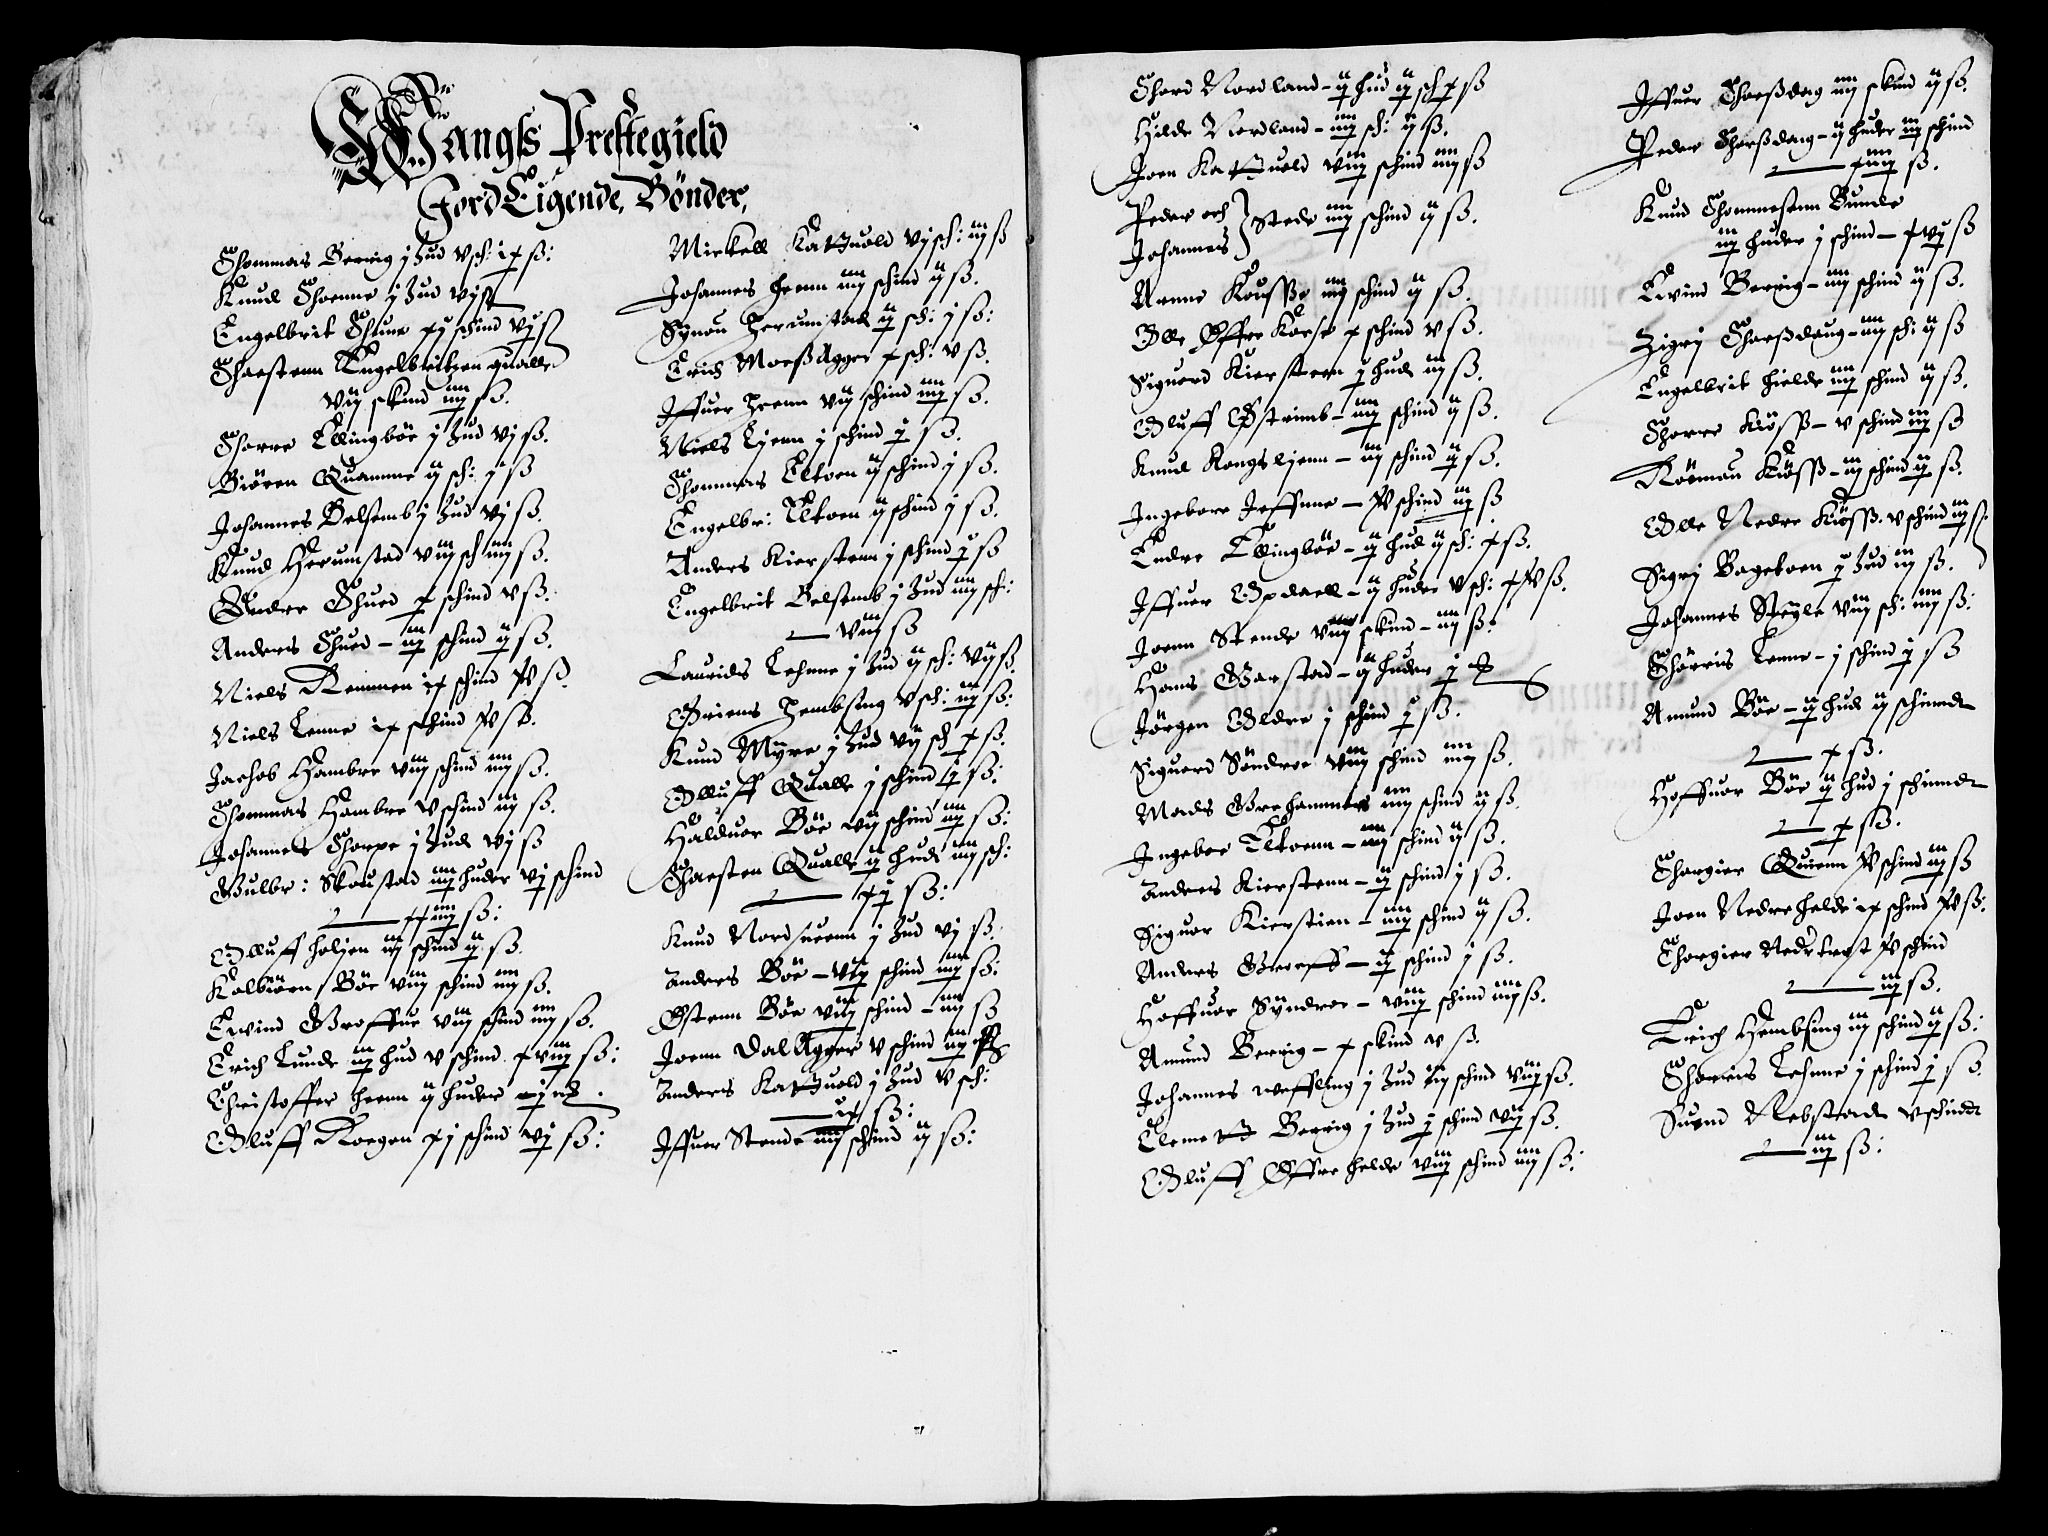 Wangs Prestegield
Jord Eigende, Bønder,
Thommas Berrig j hud v sk: ix ß:
Knud Thoenne j hud vj ß
Engelbrit Thune xij schind vj ß
Thostenn Engelbritzen Qualle
vij skind iiij ß.
Thorre Ellingbøe j hud vj ß.
Biøren Quamme ij sch: j ß
Johannes Belsemb j hud vj ß.
Knud Herumstad viij sch iiij ß.
Endre Thued x schind v ß.
Anders Thued - iiij schind ij ß.
Niels Remmen ix schind iv ß.
Niels Lenne ix schind iv ß.
Jachob Hambre viij schind iiij ß.
Thommas Hambre v schind iij ß.
Johannes Thorpe j hud vj ß
Gulbr: Skoustad iiij huder vj schind
xxiiij ß:
Olluff Holien iij schind ij ß.
Kolbiørn Bøe viij schind iiij ß.
Erwind Groffue viij schind iiij ß.
Erich Lunde iij hud v schind xviij ß:
Christoffer Heenn ij huder
Olluff Rogen xj schind vj ß:
Mickell Katzuold vj sch: iij ß
Johannes Heenn iiij schind ij ß.
Synou Herumstad ij sch: j ß:
Erich Moeß Agger x sch: v ß.
Iffuer Heenn vij schind iiij ß.
Niels Lienn j schind j ß.
Thommas Eltoen ij schind j ß.
Engelbr: Eltoen ij schind j ß.
Anders Kierstenn j schind j ß
Engelbrit Belsemb j hud iiij sch:
viij ß
Laurids Lehnne j hud ij sch: vij ß.
Griens Hembsing v sch: iij ß:
Knud Myre j hud vij sch x ß.
Olluff Qualle j schind j ß:
Halduor Bøe vij schind iiij ß:
Thosten Qualle ij hud iiij sch:
xij ß:
Knud Nordsueenn j hud vj ß.
Anders Bøe - vij schind iiij ß:
Østenn Bøe viij schind - iiij ß
Joenn Dal Agger v schind iij ß
Anders Katzuold j hud v sch:
ix ß:
Iffuer Stende iiij schind ij ß:
Thord Nordland - ij hud ij sch x ß
Halde Nordland - iiij sch: ij ß.
Joen Katzuold viij schind iiij ß
Peder och
Johannes } Stede iiij schind ij ß.
Anne Kousße iiij schind ij ß.
Olle Øffre Korse x schind v ß.
Siguord Kierstenn j hud iij ß.
Oluff Østrimb - iiij schind ij ß.
Knud Kongslienn - iij schind ij ß.
Ingebore Jeffnne - iv schind iij ß
Endre Ellingbøe - ij hud ij sch: x ß.
Iffuer Opdaell - ij huder v sch: xiv ß.
Joenn Stende viij skind - iiij ß.
Hans Garstad - ij huder
Jørgen Oldre j schind j ß.
Siguord Søndroe viij schind iiij ß.
Mads Grehammer iiij schind ij ß.
Ingeboe Eltoenn - iiij schind ij ß.
Anders Kierstenn - ij schind j ß.
Siguor Kierstien - iiij schind ij ß.
Anders Groeff - ij schind j ß.
Hoffuor Syndroe - viij schind iiij ß.
Amund Berrig - x skind v ß.
Johannes weffling j hud iij schind viij ß.
Clemetz Berrig j hud j schind vij ß.
Olluff Øffrehelde viij schind iiij ß:
Iffuer Thoeßdag iiij skind ij ß.
Peder Thorßdaug - ij huder iij schind
xiiij ß.
Knud Thommesenn Bunde
iij huder j schind - xvj ß
Ewind Berrig - iiij schind ij ß.
Zigrj Thoeßdaug - iiij sch: ij ß
Engelbrit Hielde iiij schind ij ß.
Thorre Kiøsß - v schind iij ß
Roemun Kiøsß - iij schind ij ß.
Olle Nedre Kiøsß. v schind iij ß
Sigrj Bagetoen j hud iij ß.
Johannes Steyle viij sch: iiij ß:
Thorris Lenne - j schind j ß
Amund Bøe - ij hud ij schinndt
x ß.
Hoffuor Bøe ij hud j schinndt
x ß.
Thorgier Quienn iv schind iij ß
Joen Nedrehelde ix schind iv ß:
Thorgier Nedrtregt iv schind
iij ß.
Erich Hembsing iij schind ij ß:
Thorris Lehnne j schind j ß.
Suend Nebstade v schindt
iij ß: